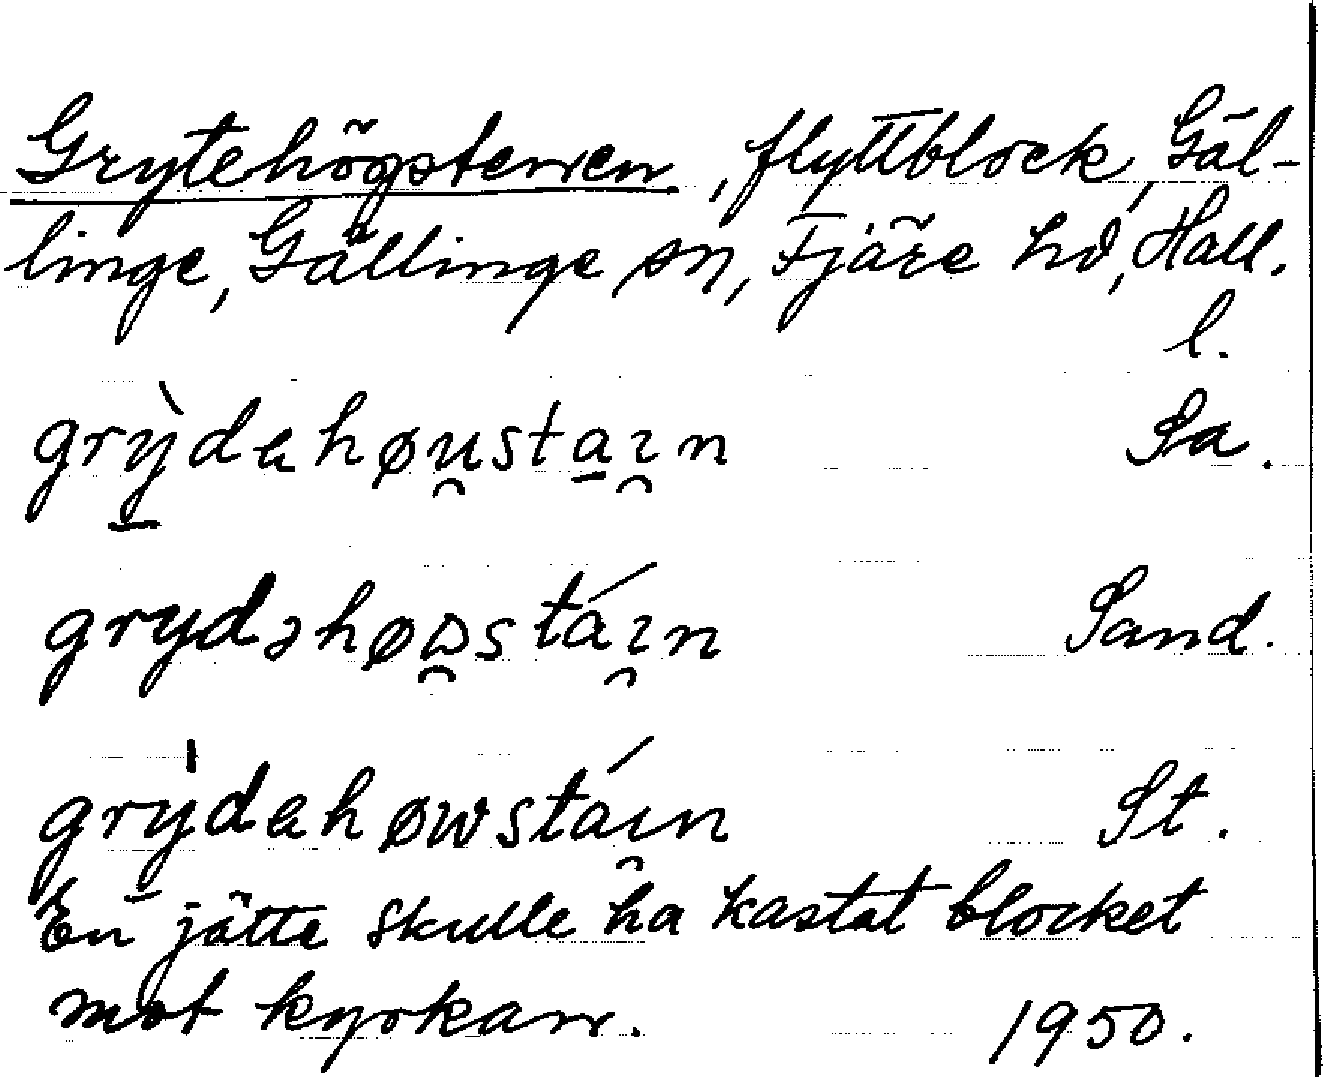 Grytehögstenen, flyttblock, Gäl-
linge, Gällinge sn, Fjäre hd, Hall.
l.
grỳdahøu̯sta̠ı̯n Sa.
grydəhøω̯stáı̯n Sand.
grỳdahøwstáı̯n St.
En jätte skulle ha kastat blocket
mot kyrkan. 1950.